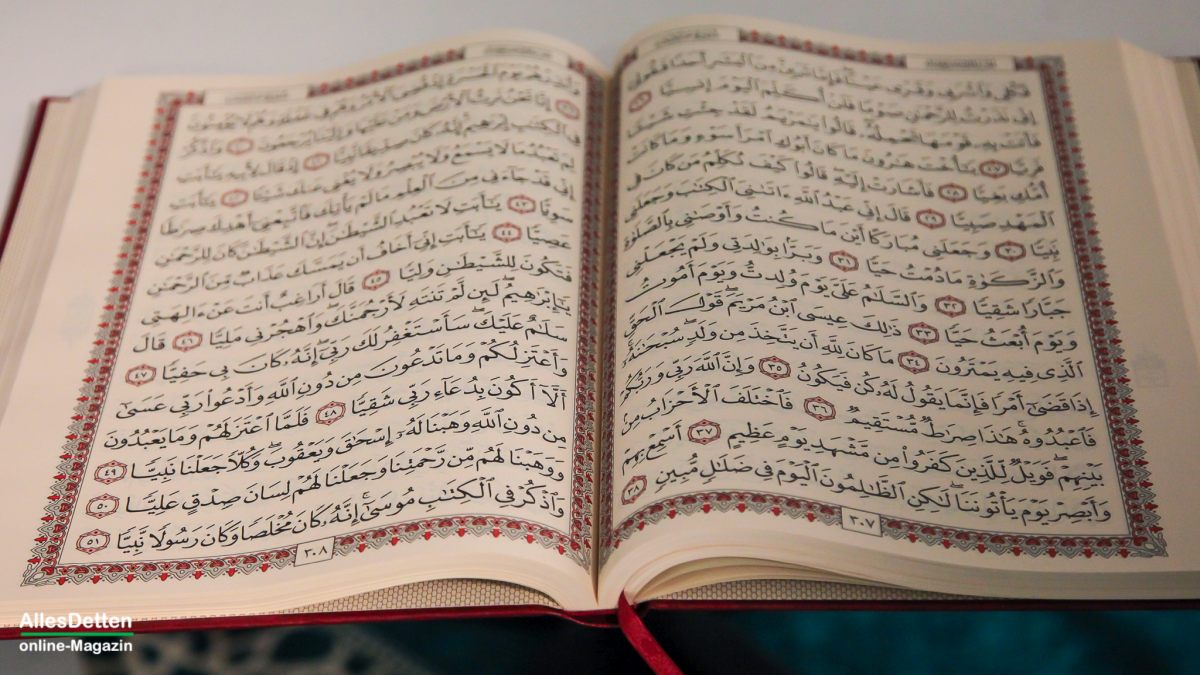 فَكُلِى وَٱشْرَبِى وَقَرِّى عَيْنًا فَإِمَّا تَرَيِنَّ مِنَ ٱلْبَشَرِ أَحَدًا فَقُولِىٓ
إِنِّى نَذَرْتُ لِلرَّحْمَٰنِ صَوْمًا فَلَنْ أُكَلِّمَ ٱلْيَوْمَ إِنسِيًّا ٢٦
فَأَتَتْ بِهِۦ قَوْمَهَا تَحْمِلُهُۥ قَالُوا۟ يَٰمَرْيَمُ لَقَدْ جِئْتِ شَيْـًٔا
فَرِيًّا ٢٧ يَٰٓأُخْتَ هَٰرُونَ مَا كَانَ أَبُوكِ ٱمْرَأَ سَوْءٍ وَمَا كَانَتْ
أُمُّكِ بَغِيًّا ٢٨ فَأَشَارَتْ إِلَيْهِ قَالُوا۟ كَيْفَ نُكَلِّمُ مَن كَانَ فِى
ٱلْمَهْدِ صَبِيًّا ٢٩ قَالَ إِنِّى عَبْدُ ٱللَّهِ ءَاتَىٰنِىَ ٱلْكِتَٰبَ وَجَعَلَنِى
نَبِيًّا ٣٠ وَجَعَلَنِى مُبَارَكًا أَيْنَ مَا كُنتُ وَأَوْصَٰنِى بِٱلصَّلَوٰةِ
وَٱلزَّكَوٰةِ مَا دُمْتُ حَيًّا ٣١ وَبَرًّۢا بِوَٰلِدَتِى وَلَمْ يَجْعَلْنِى
جَبَّارًا شَقِيًّا ٣٢ وَٱلسَّلَٰمُ عَلَىَّ يَوْمَ وُلِدتُّ وَيَوْمَ أَمُوتُ
وَيَوْمَ أُبْعَثُ حَيًّا ٣٣ ذَٰلِكَ عِيسَى ٱبْنُ مَرْيَمَ قَوْلَ ٱلْحَقِّ
ٱلَّذِى فِيهِ يَمْتَرُونَ ٣٤ مَا كَانَ لِلَّهِ أَن يَتَّخِذَ مِن وَلَدٍ سُبْحَٰنَهُۥٓ
إِذَا قَضَىٰٓ أَمْرًا فَإِنَّمَا يَقُولُ لَهُۥ كُن فَيَكُونُ ٣٥ وَإِنَّ ٱللَّهَ رَبِّى وَرَبُّكُمْ
فَٱعْبُدُوهُ هَٰذَا صِرَٰطٌ مُّسْتَقِيمٌ ٣٦ فَٱخْتَلَفَ ٱلْأَحْزَابُ مِنۢ
بَيْنِهِمْ فَوَيْلٌ لِّلَّذِينَ كَفَرُوا۟ مِن مَّشْهَدِ يَوْمٍ عَظِيمٍ ٣٧ أَسْمِعْ بِهِمْ
وَأَبْصِرْ يَوْمَ يَأْتُونَنَا لَٰكِنِ ٱلظَّٰلِمُونَ ٱلْيَوْمَ فِى ضَلَٰلٍ مُّبِينٍ ٣٨
٣٠٧
وَأَنذِرْهُمْ يَوْمَ ٱلْحَسْرَةِ إِذْ قُضِىَ ٱلْأَمْرُ وَهُمْ فِى غَفْلَةٍ وَهُمْ لَا يُؤْمِنُونَ
٣٩ إِنَّا نَحْنُ نَرِثُ ٱلْأَرْضَ وَمَنْ عَلَيْهَا وَإِلَيْنَا يُرْجَعُونَ ٤٠ وَٱذْكُرْ
فِى ٱلْكِتَٰبِ إِبْرَٰهِيمَ إِنَّهُۥ كَانَ صِدِّيقًا نَّبِيًّا ٤١ إِذْ قَالَ لِأَبِيهِ يَٰٓأَبَتِ
لِمَ تَعْبُدُ مَا لَا يَسْمَعُ وَلَا يُبْصِرُ وَلَا يُغْنِى عَنكَ شَيْـًٔا ٤٢ يَٰٓأَبَتِ
إِنِّى قَدْ جَآءَنِى مِنَ ٱلْعِلْمِ مَا لَمْ يَأْتِكَ فَٱتَّبِعْنِىٓ أَهْدِكَ صِرَٰطًا
سَوِيًّا ٤٣ يَٰٓأَبَتِ لَا تَعْبُدِ ٱلشَّيْطَٰنَ إِنَّ ٱلشَّيْطَٰنَ كَانَ لِلرَّحْمَٰنِ
عَصِيًّا ٤٤ يَٰٓأَبَتِ إِنِّىٓ أَخَافُ أَن يَمَسَّكَ عَذَابٌ مِّنَ ٱلرَّحْمَٰنِ
فَتَكُونَ لِلشَّيْطَٰنِ وَلِيًّا ٤٥ قَالَ أَرَاغِبٌ أَنتَ عَنْ ءَالِهَتِى
يَٰٓإِبْرَٰهِيمُ لَئِن لَّمْ تَنتَهِ لَأَرْجُمَنَّكَ وَٱهْجُرْنِى مَلِيًّا ٤٦ قَالَ
سَلَٰمٌ عَلَيْكَ سَأَسْتَغْفِرُ لَكَ رَبِّىٓ إِنَّهُۥ كَانَ بِى حَفِيًّا ٤٧
وَأَعْتَزِلُكُمْ وَمَا تَدْعُونَ مِن دُونِ ٱللَّهِ وَأَدْعُوا۟ رَبِّى عَسَىٰٓ
أَلَّآ أَكُونَ بِدُعَآءِ رَبِّى شَقِيًّا ٤٨ فَلَمَّا ٱعْتَزَلَهُمْ وَمَا يَعْبُدُونَ
مِن دُونِ ٱللَّهِ وَهَبْنَا لَهُۥٓ إِسْحَٰقَ وَيَعْقُوبَ وَكُلًّا جَعَلْنَا نَبِيًّا ٤٩
وَوَهَبْنَا لَهُم مِّن رَّحْمَتِنَا وَجَعَلْنَا لَهُمْ لِسَانَ صِدْقٍ عَلِيًّا ٥٠
وَٱذْكُرْ فِى ٱلْكِتَٰبِ مُوسَىٰٓ إِنَّهُۥ كَانَ مُخْلَصًا وَكَانَ رَسُولًا نَّبِيًّا ٥١
٣٠٨
AllesDetten
online-Magazin